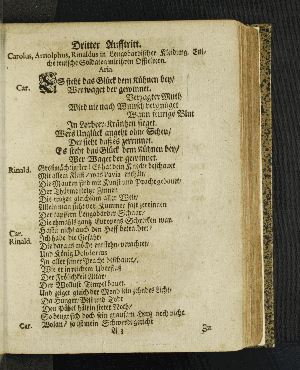 Dritter Aufftritt.
Carolus, Arnolphus, Rinaldus in Longobardischer Kleidung, Etliche teutsche Soldaten mit ihren Officirern.
Aria
Car. ES steht das Glück dem Kühnen bey/
Wer waget der gewinnet.
Verzagter Muth
Wird nie nach Wunsch
Wann
In Lorbeer-Kräntzen sieget.
Wers Unglück angeht ohn Scheu/
Der sieht daß es zerrinnet.
Es steht das Glück dem kühnen bey/
Wer Waget der gewinnet.
Rinald. Großmächtigster! Es hat dein Knecht beschauet
Mit allem Fleiß/ was Pavia enthält;
Die Mauren sind mit Kunst und Pracht gebauet/
Der Thürne stoltze Zinnen/
Die trotzen gleichsam aller Welt/
Allein man sieht vor Kummer fast zerrinnen
Der tapffern Longobarder Schaar/
Die ehmahls gantz Europens Schrecken war.
Car. Hastu nicht auch den Hoff betrachtet/
Rinald. Ich habe die Gefahr/
Die daraus mir entstehn verachtet/
Und König Desiderius
In aller seiner Pracht beschauet/
Wie er in reichem Uberfluß
Der Fröligkeit Altär/
Der Wollust Tempel bauet.
Und zeiget gleich der Mond ein gehndes Licht/
Da Hunger/ Pest und Todt
Den Pöbel
So beugt sich doch sein grausam Hertz noch nicht.
Car. Wolan/ so ist mein Schwerdt gericht
A 3
Zu